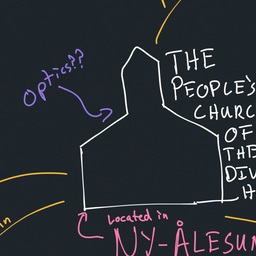 Optics??
THE
PEOPLE'S
CHURC
OF
THE
DIV
H
Located in
NY-ÅLESUN
in